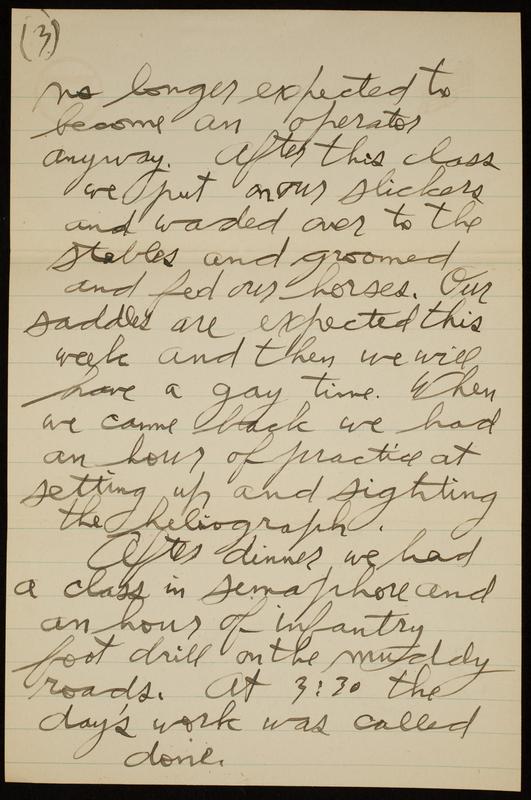 (3)
no longer expected to
become an operator
anyway. After this class
we put on our slickers
and waded over to the
stables and groomed
and fed our horses. Our
saddles are expected this
week and then we will
have a gay time. When
we came back we had
an hour of practice at
setting up and sighting
the heliograph.
After dinner we had
a class in semaphore and
an hour of infantry
foot drill on the muddy
roads. At 3:30 the
day's work was called
done.